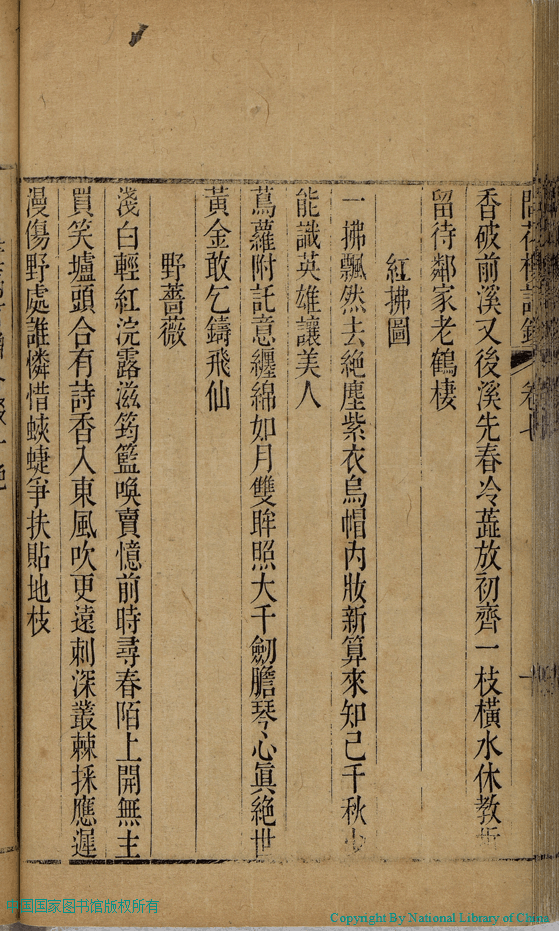 香破前溪又後溪先春冷蕋放初齊一枝橫水休教折
留待鄰家老鶴棲
紅拂圖
一拂飄然去絶塵紫衣烏帽內妝新算來知己千秋少
能識英雄讓美人
蔦蘿附託意纏綿如月雙眸照大千劒膽琴心眞絶世
黃金敢乞鑄飛仙
野薔薇
淺白輕紅浣露滋筠籃喚賣憶前時尋春陌上開無主
買笑壚頭合有詩香入東風吹更遠刺深叢棘採應遲
漫傷野處誰憐惜蛺蜨爭扶貼地枝
中国国家图书馆版权所有
Copyright By National Library of China